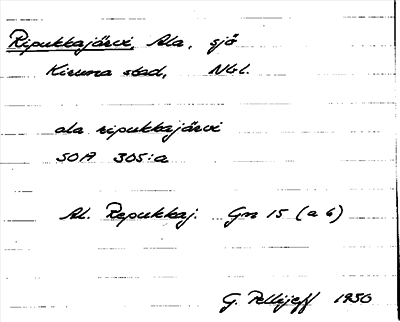 Ripukkajärvi, Ala, sjö
Kiruna stad, Nbl.
ala ripukkajärvi
SOA 305:a
Al. Repukkaj. Gn 15 (a 6)
G. Pellijeff 1950